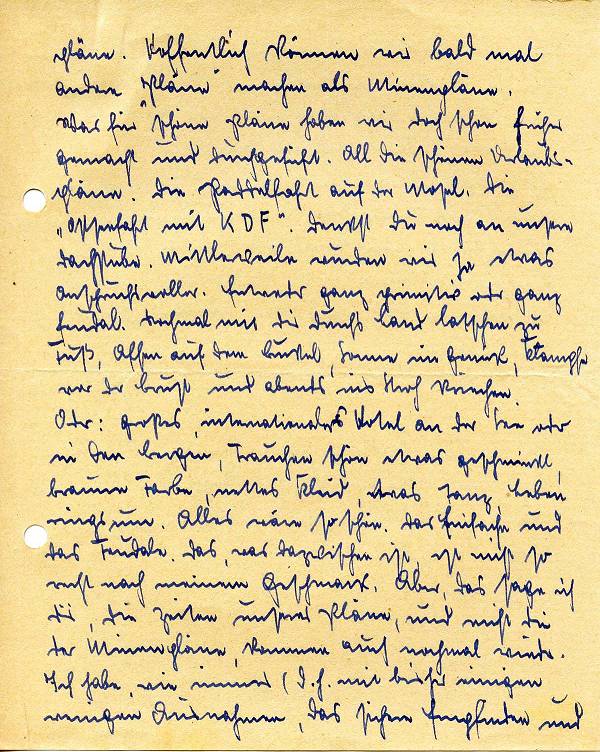 pläne. Hoffentlich können wir bald mal
andere "Pläne" machen als Minenpläne.
Was für schöne Pläne haben wir doch schon früher
gemacht und durchgeführt. All die schönen Urlaubs-
pläne. Die Paddelfahrt auf der Mosel. Die
„Ostseefahrt mit KDF". Denkst Du noch an unsere
Dachstube. Mittlerweile wurden wir ja etwas
anspruchsvoller. Entweder ganz primitiv oder ganz
feudal. Nochmal mit Dir durchs Land latschen zu
Fuß, Affen auf dem Buckel, Sonne im Genick, Klampfe
vor der Brust und abends ins Stroh kriechen.
Oder: großes, internationales Hotel an der See oder
in den Bergen, Frauchen schön etwas geschminkt,
braune Farbe, nettes Kleid, etwas Tanz, Leben
ringsum. Alles wäre so schön. Das Einfache und
das Feudale. Das, was dazwischen ist, ist nicht so
recht nach meinem Geschmack. Aber, das sage ich
Dir, die Zeiten unserer Pläne, und nicht die
der Minenpläne, kommen auch nochmal wieder.
Ich habe, wie immer (d.h. mit bisher einigen
wenigen Ausnahmen, das sichere Empfinden und